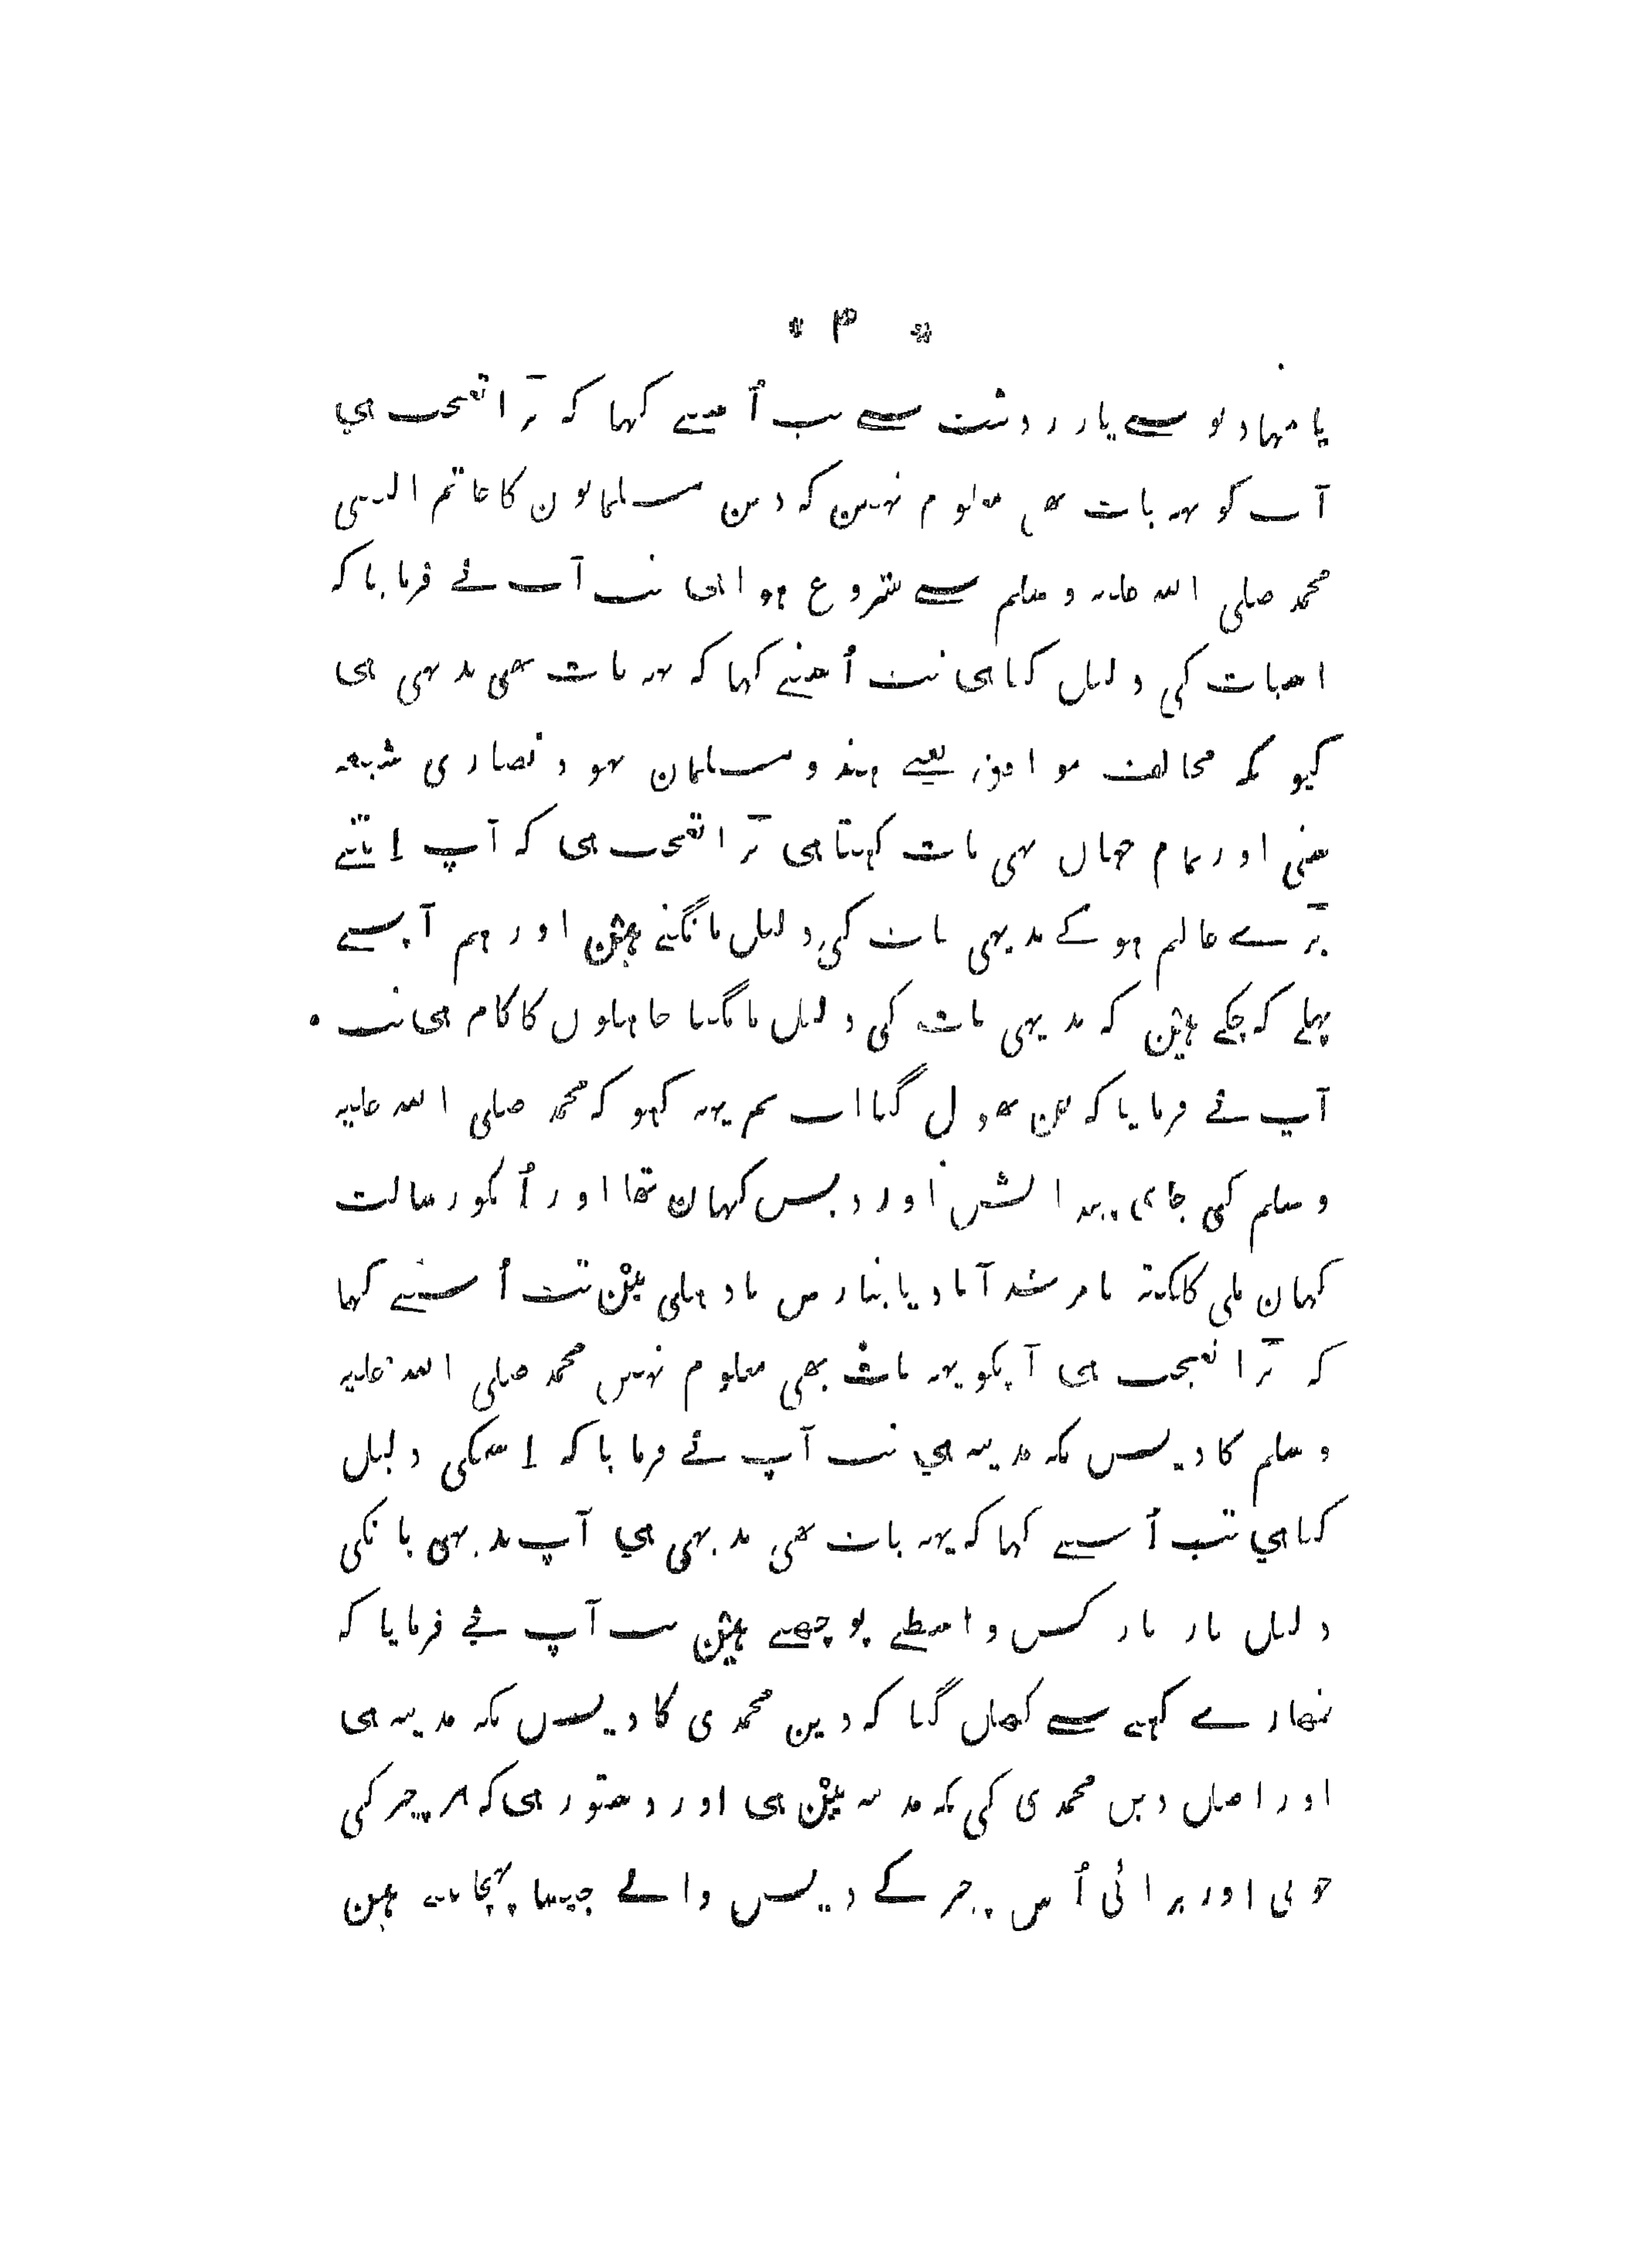 * ۳ *
یا مہادیو سے یا زردشت سے تب اُسنے کہا کہ بڑا تعجب هي
آپ کو یہہ بات بھی معلوم نہیں کہ دین مسلمانون کا خاتم النبیین
محمد صلی اللہ علیہ و سلم سے شروع ہوا هی تب آپ نے فرمایا کہ
اسبات کی دلیل کیا هی تب اُسنے کہا کہ یہہ بات بھی بدیہی هی
کیونکہ مخالف موافق یعنے ہندو مسلمان یہود نصاری شیعہ
سنی اور تمام جہاں یہی بات کہتا هی بڑا تعجب هی کہ آپ اِتنے
بڑے عالم ہو کے بدیہی بات کی دلیل مانگتے هیْن اور ہم آپسے
پہلے کہ چکے هیْن کہ بدیہی بات کی دلیل مانگنا جاہلوں کا کام هی تب
آپ نے فرمایا کہ میں بھول گیا اب تم یہہ کہو کہ محمد صلی اللہ علیہ
و سلم کی جای پیدایش اور دیس کہان تھا اور اُنکو رسالت
کہان ملی کلکتہ یا مرشدآباد یا بنارس یا دہلی میْن تب اُسنے کہا
کہ بڑا تعجب هی آپکو یہہ بات بھی معلوم نہیں محمد صلی اللہ علیہ
و سلم کا دیس مکہ مدینہ هي تب آپ نے فرمایا کہ اِسکی دلیل
کیا هي تب اُسنے کہا کہ یہہ بات بھی بدیہی هي آپ بدیہی بانکی
دلیل بار بار کس واسطے پوچھتے هیْن تب آپ نے فرمایا کہ
تمھارے کہنے سے کھل گیا کہ دین محمدی کا دیس مکہ مدینہ هی
اور اصل دین محمدی کی مکہ مدینہ میْن هی اور دستور هی کہ ہر چیز کی
خوبی اور برائی اُس چیز کے دیس والے جیسا پہچانتے هین